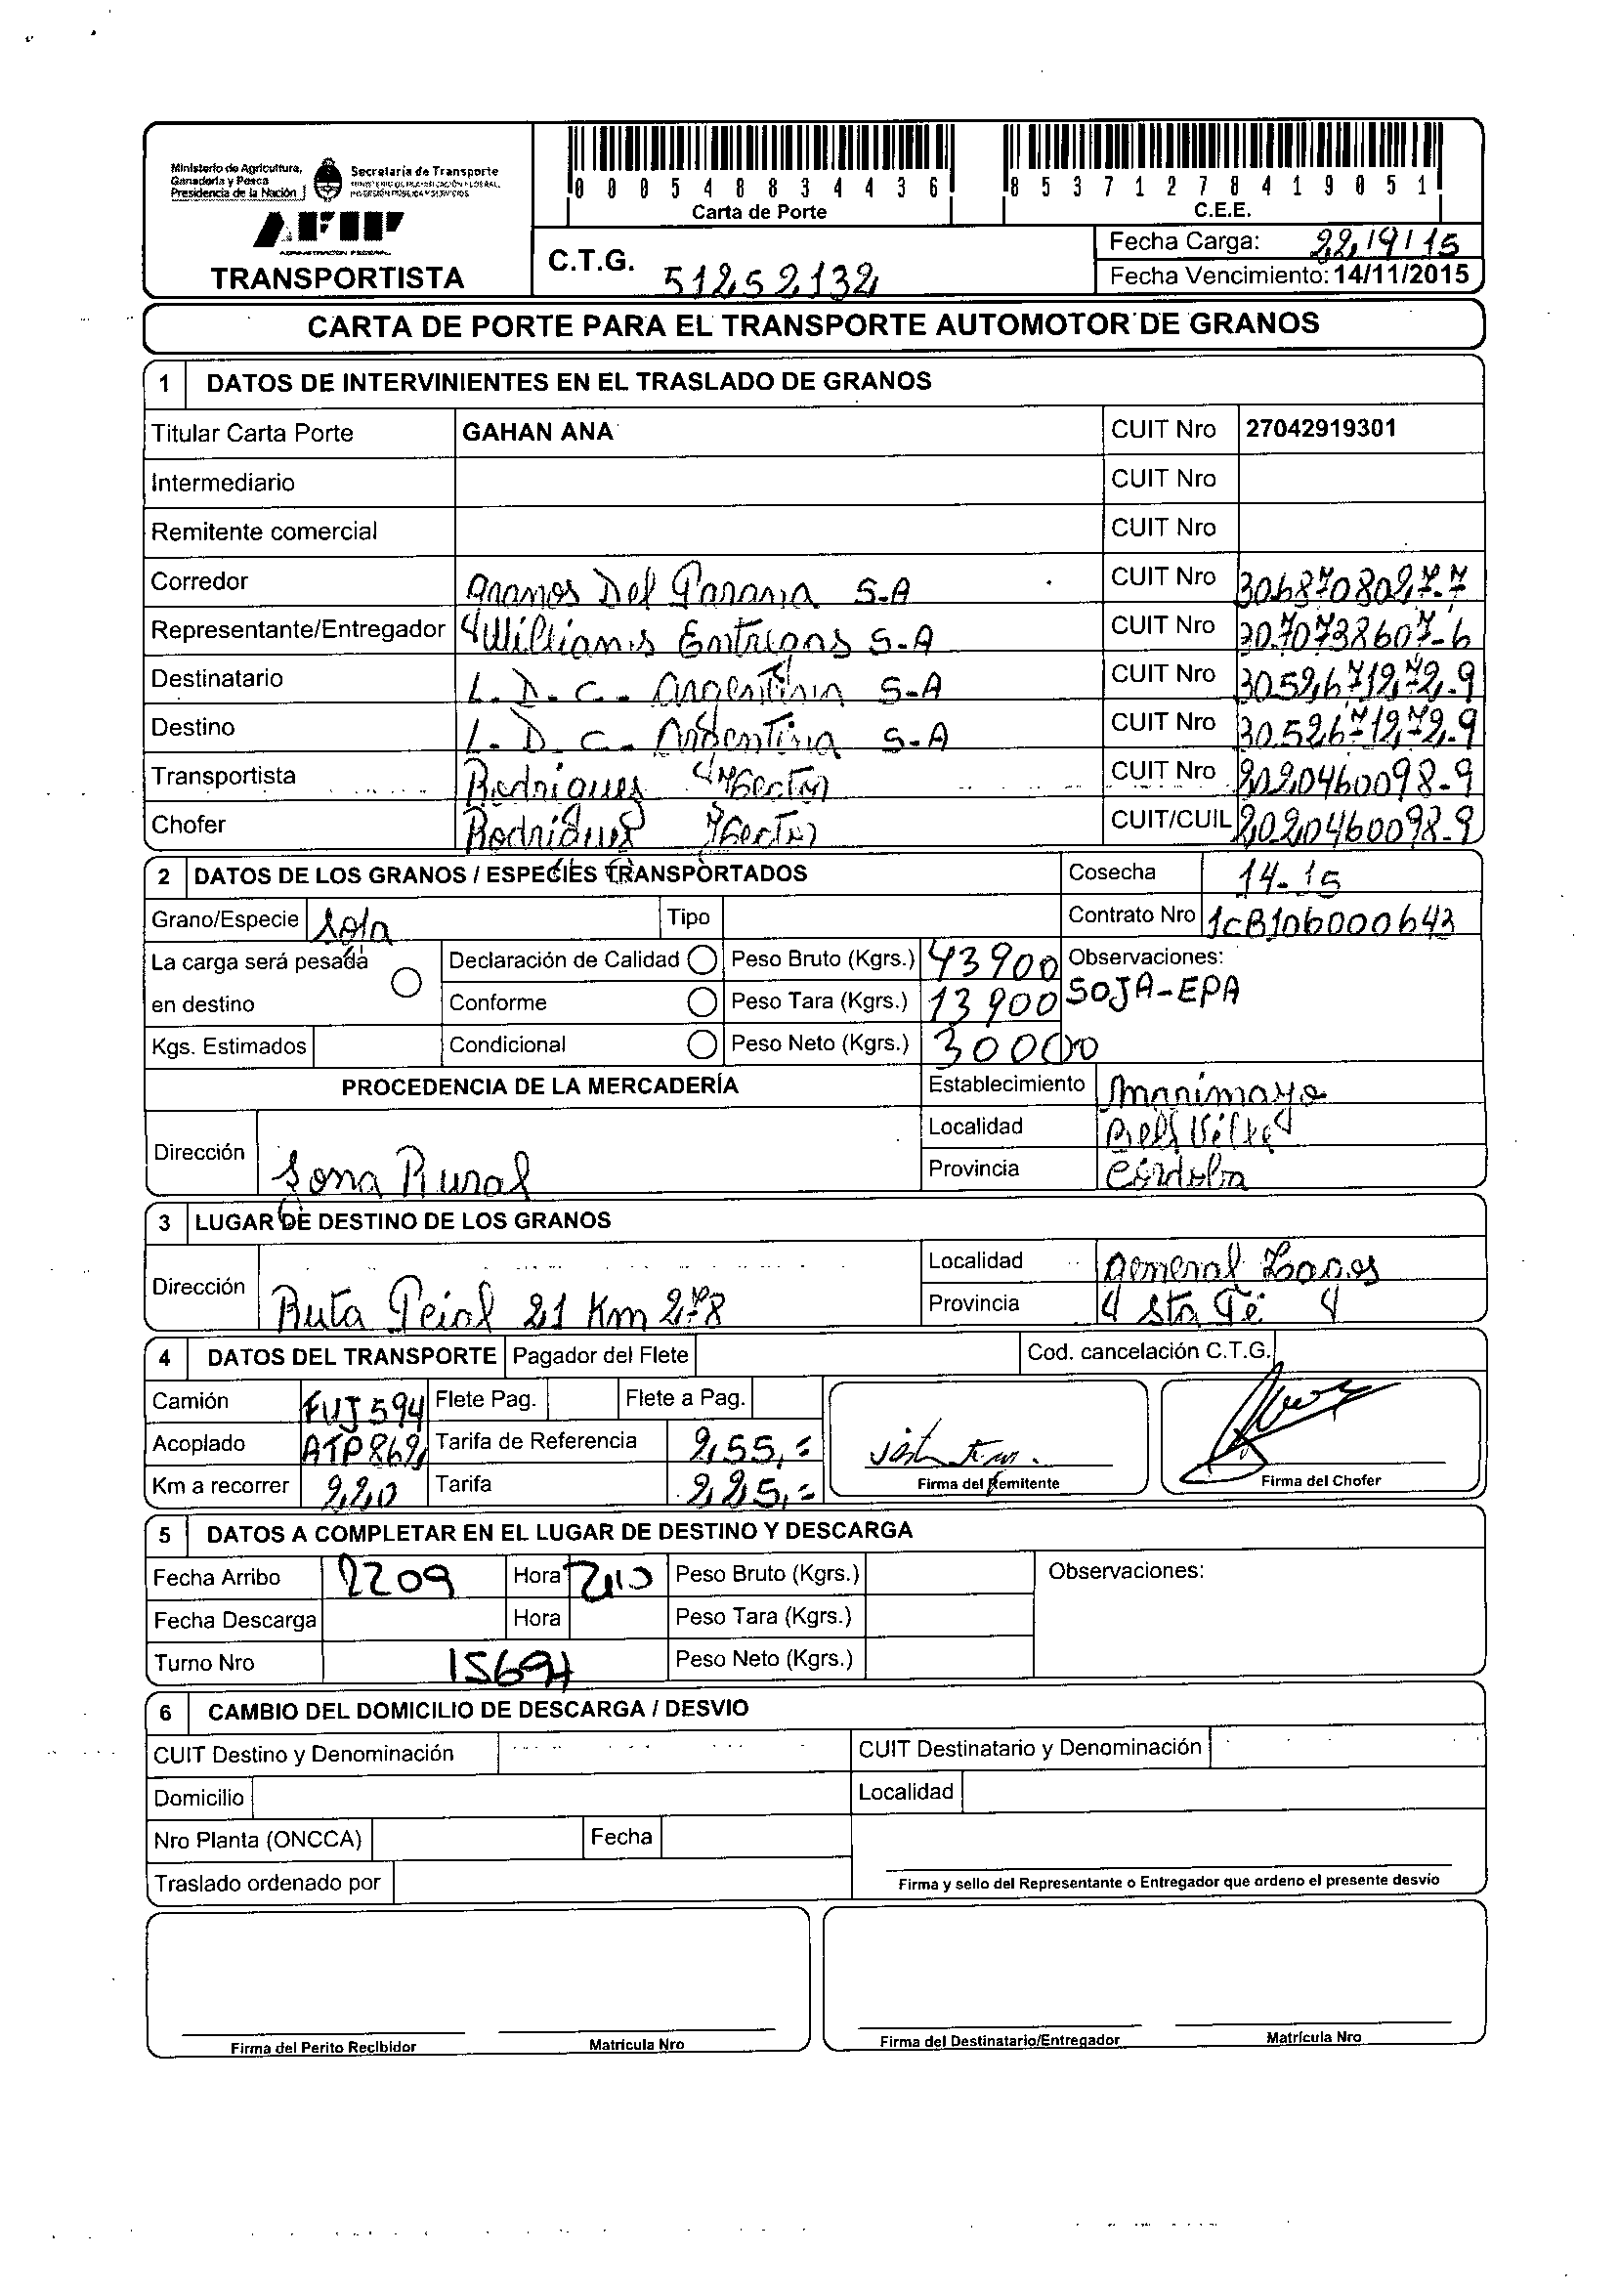 Ministerio de Agricultura,
Ganadería y Pesca
Presidencia de la Nación
Secretaria de Transporte
AFIP
TRANSPORTISTA
000548834436
Carta de Porte
85371278419051
C.E.E.
C.T.G. 51252132
Fecha Carga: 22/9/15
Fecha Vencimiento: 14/11/2015
CARTA DE PORTE PARA EL TRANSPORTE AUTOMOTOR DE GRANOS
1 DATOS DE INTERVINIENTES EN EL TRASLADO DE GRANOS
Titular Carta Porte GAHAN ANA CUIT Nro 27042919301
Intermediario CUIT Nro
Remitente comercial CUIT Nro
Corredor Granos Del Parana S-A CUIT Nro 30687080277
Representante/Entregador Williams Entregas S-A CUIT Nro 30707386076
Destinatario L.D.C. Argentina S-A CUIT Nro 3052671272.9
Destino L.D.C. Argentina S-A CUIT Nro 3052671272.9
Transportista Rodrigues Hector CUIT Nro 2020460098-9
Chofer Rodrigues Hector CUIT/CUIL 2020460098-9
2 DATOS DE LOS GRANOS / ESPECIES TRANSPORTADOS Cosecha 14-15
Grano/Especie Soja Tipo Contrato Nro 1CB106000643
La carga será pesada
en destino
Declaración de Calidad Peso Bruto (Kgrs.) 43900 Observaciones:
Conforme Peso Tara (Kgrs.) 13900 SOJA-EPA
Kgs. Estimados Condicional Peso Neto (Kgrs.) 30000
PROCEDENCIA DE LA MERCADERÍA Establecimiento Marimayo
Dirección Sona Rural
Localidad Bell Ville
Provincia Córdoba
3 LUGAR DE DESTINO DE LOS GRANOS
Dirección Ruta Pcial 21 Km 278
Localidad General Lagos
Provincia Sta Fé
4 DATOS DEL TRANSPORTE Pagador del Flete Cod. cancelación C.T.G.
Camión FUJ594 Flete Pag. Flete a Pag.
Acoplado ATP862 Tarifa de Referencia 255,=
Km a recorrer 220 Tarifa 225,=
Firma del Remitente
Firma del Chofer
5 DATOS A COMPLETAR EN EL LUGAR DE DESTINO Y DESCARGA
Fecha Arribo 2209 Hora Peso Bruto (Kgrs.) Observaciones:
Fecha Descarga Hora Peso Tara (Kgrs.)
Turno Nro Peso Neto (Kgrs.)
6 CAMBIO DEL DOMICILIO DE DESCARGA / DESVIO
CUIT Destino y Denominación CUIT Destinatario y Denominación
Domicilio Localidad
Nro Planta (ONCCA) Fecha
Traslado ordenado por
Firma y sello del Representante o Entregador que ordeno el presente desvío
Firma del Perito Recibidor Matrícula Nro
Firma del Destinatario/Entregador Matrícula Nro